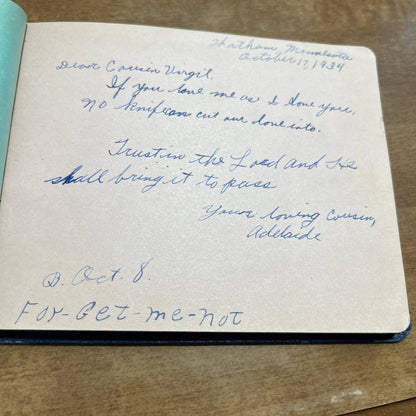 Chatham, Minnesota
October 17, 1934
Dear Cousin Virgil,
If you love me as I love you,
No knife can cut our love into.
Trust in the Lord and He
shall bring it to pass
Your loving cousin,
Adelaide
B. Oct. 8.
For-Get-me-not